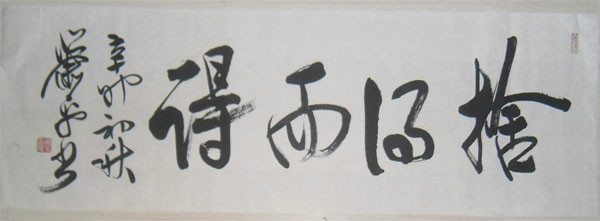 捨得而得
辛卯初秋
書